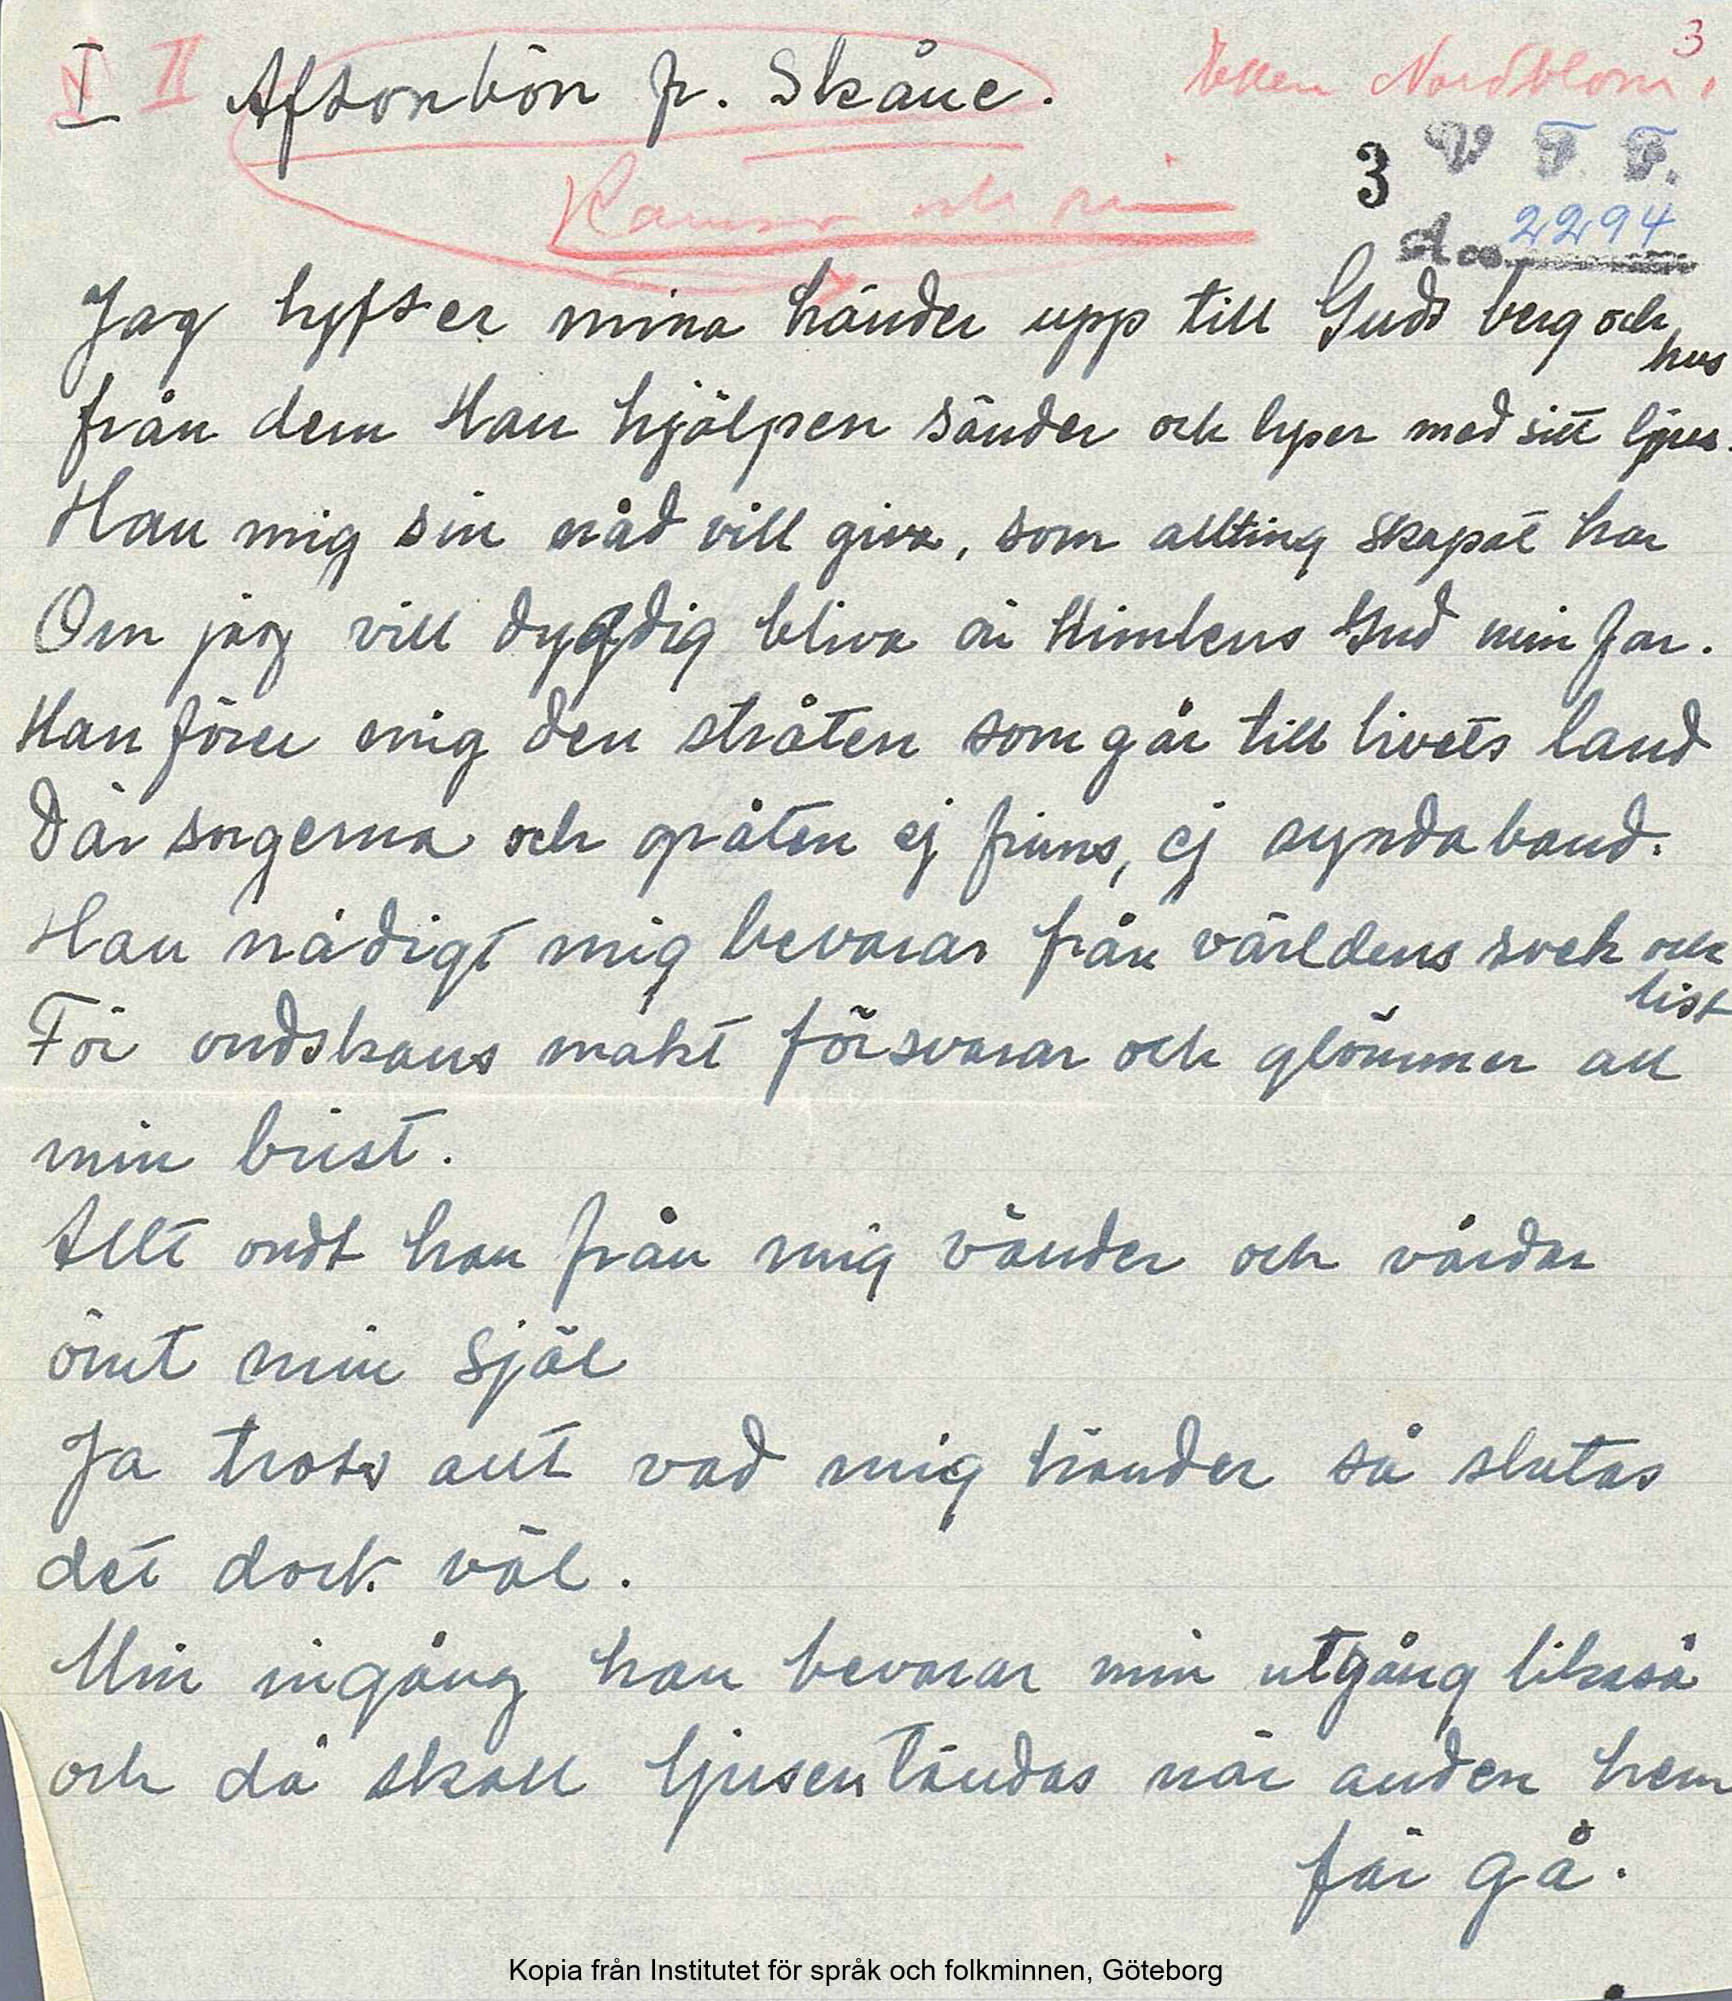 3
I II Aftonbön fr. Skåne. Ellen Nordblom.
3 V F F.
Acc. 2294
Ramsor och
Jag lyfter mina händer upp till Guds berg och
hus
från dem Han hjälpen sänder och lyser med sitt ljus.
Han mig sin nåd vill giva, som allting skapat har
Om jag vill dygdig bliva är Himlens Gud min far.
Han förer mig den stråten som går till livets land
Där sorgerna och gråten ej finns, ej synda band.
Han nådigt mig bevarar från världens svek och
list
För ondskans makt försvarar och glömmer all
min brist.
Allt ondt han från mig vänder och vårdar
ömt min själ
Ja trots allt vad mig händer så slutas
det dock väl.
Min ingång han bevarar min utgång likaså
och då skall ljusen tändas när anden hem
får gå.
Kopia från Institutet för språk och folkminnen, Göteborg